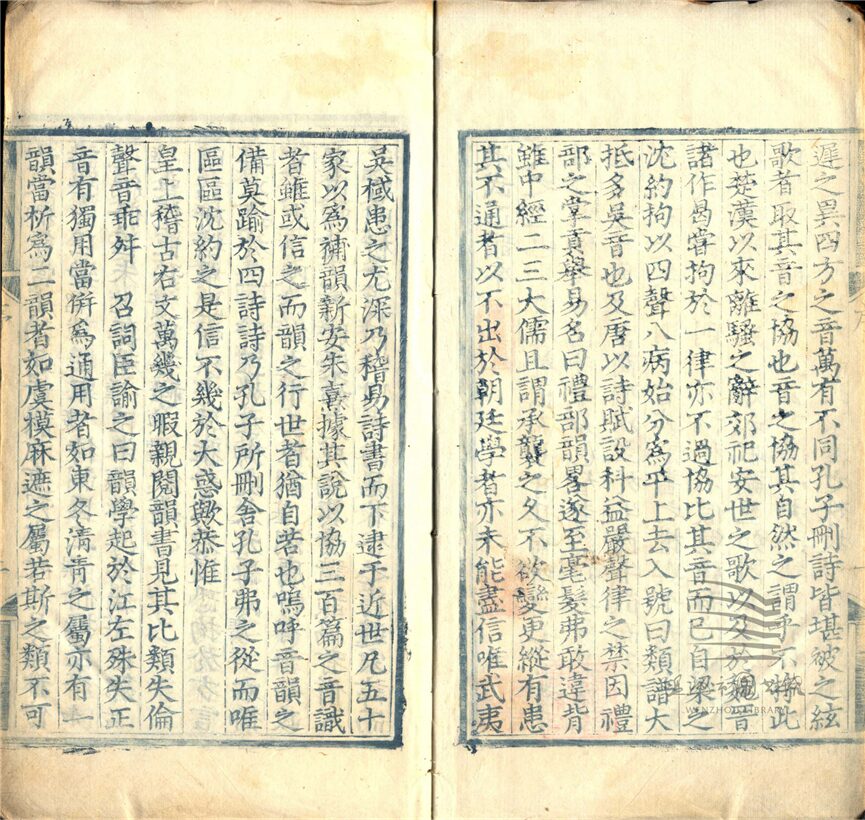 遲之異四方之音萬有不同孔子刪詩皆堪被之絃
歌者取其音之協也音之協其自然之謂乎不特此
也楚漢以來離騷之辭郊祀安世之歌以及於魏晉
諸作曷嘗拘於一律亦不過協比其音而已自梁之
沈約拘以四聲八病始分為平上去入號曰類譜大
抵多吳音也及唐以詩賦設科益嚴聲律之禁因禮
部之掌貢舉易名曰禮部韻畧遂至毫髮弗敢違背
雖中經二三大儒且謂承襲之久不欲變更縱有患
其不通者以不出於朝廷學者亦未能盡信唯武夷
吳棫患之尤深乃稽易詩書而下逮于近世凡五十
家以為補韻新安朱熹據其說以協三百篇之音識
者雖或信之而韻之行世者猶自若也嗚呼音韻之
備莫踰於四詩詩乃孔子所刪舍孔子弗之從而唯
區區沈約之是信不幾於大惑歟恭惟
皇上稽古右文萬幾之暇親閱韻書見其比類失倫
聲音乖舛 召詞臣諭之曰韻學起於江左殊失正
音有獨用當併為通用者如東冬清青之屬亦有一
韻當析為二韻者如虞模麻遮之屬若斯之類不可
WENZHOU LIBRARY